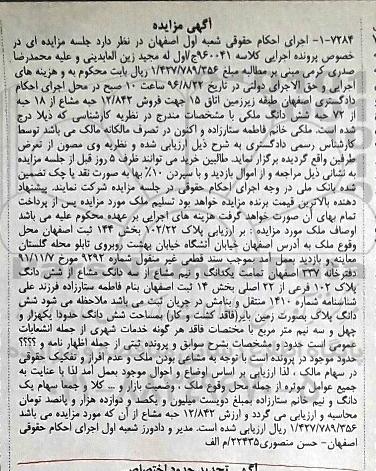 آگهی مزایده
۷۲۸۴-۱- اجرای احکام حقوقی شعبه اول اصفهان در نظر دارد جلسه مزایده ای در
خصوص پرونده اجرایی کلاسه ۹۶۰۰۴۱ج/اول له مجید زین العابدینی و علیه محمدرضا
صدری کرمی مبنی بر مطالبه مبلغ ۱/۴۲۷/۷۸۹/۳۵۶ ریال بابت محکوم به و هزینه های
اجرایی و حق الاجرای دولتی در تاریخ ۹۶/۸/۲۲ ساعت ۱۰ صبح در محل اجرای احکام
دادگستری اصفهان طبقه زیرزمین اتاق ۱۵ جهت فروش ۱۲/۸۴۲ حبه مشاع از ۱۸ حبه
از ۷۲ حبه شش دانگ ملکی با مشخصات مندرج در نظریه کارشناسی که ذیلا درج
شده است. ملکی خانم فاطمه ستارزاده و اکنون در تصرف مالکانه مالک می باشد توسط
کارشناس رسمی دادگستری به شرح ذیل ارزیابی شده و نظریه وی مصون از تعرض
طرفین واقع گردیده برگزار نماید. طالبین خرید می توانند ظرف ۵ روز قبل از جلسه مزایده
به نشانی ذیل مراجعه و از اموال بازدید و با سپردن ۱۰٪ بها به صورت نقد یا چک تضمین
شده بانک ملی در وجه اجرای احکام حقوقی در جلسه مزایده شرکت نمایند. پیشنهاد
دهنده بالاترین قیمت برنده مزایده خواهد بود تسلیم ملک مورد مزایده پس از پرداخت
تمام بهای آن صورت خواهد گرفت هزینه های اجرایی بر عهده محکوم علیه می باشد
اوصاف ملک مورد مزایده : بر ارزیابی پلاک ۱۰۲/۲۲ بخش ۱۴۴ ثبت اصفهان محل
وقوع ملک به آدرس اصفهان خیابان آتشگاه خیابان بهشت روبروی تابلو محله گلستان
معاینه و بازدید بعمل آمد بموجب سند قطعی غیر منقول شماره ۹۲۹۲ مورخ ۹۱/۱۱/۷
دفترخانه ۳۳۷ اصفهان تمامت یکدانگ و نیم مشاع از سه دانگ مشاع از شش دانگ
پلاک ۱۰۲ فرعی از ۲۲ اصلی بخش ۱۴ ثبت اصفهان بنام فاطمه ستارزاده فرزند علی
شناسنامه شماره ۱۴۱۰ منتقل و بنامش در جریان ثبت می باشد ملاحظه می شود شش
دانگ پلاک بصورت زمین بایر(فاقد کشت و کار) مساحت شش دانگ حدودا یکهزار و
چهل و سه نیم متر مربع با مختصات فاقد هر گونه خدمات شهری از جمله انشعابات
عمومی است حدود و مشخصات بشرح سوابق و پرونده ثبتی از جمله اظهار نامه و ؟؟؟؟
حدود موجود در پرونده است با توجه به مشاعی بودن ملک و عدم افراز و تفکیک حقوقی
در سهام مالک ، لذا ارزیابی بر اساس اوضاع و احوال موجود بعمل آمد لذا با عنایت به
جمیع عوامل موثره از جمله محل وقوع ملک ، وضعیت بازار و ... کلا و جمعا سهام یک
دانگ و نیم خانم ستارزاده بمبلغ دویست میلیون و یکصد و دوازده هزار و پانصد تومان
محاسبه و ارزیابی می گردد و ارزش ۱۲/۸۴۲ حبه مشاع از آن که مورد مزایده می باشد
۱/۴۲۷/۷۸۹/۳۵۶ ریال ارزیابی شده است. مدیر و دادورز شعبه اول اجرای احکام حقوقی
اصفهان- حسن منصوری ۲۲۴۳۵/م الف